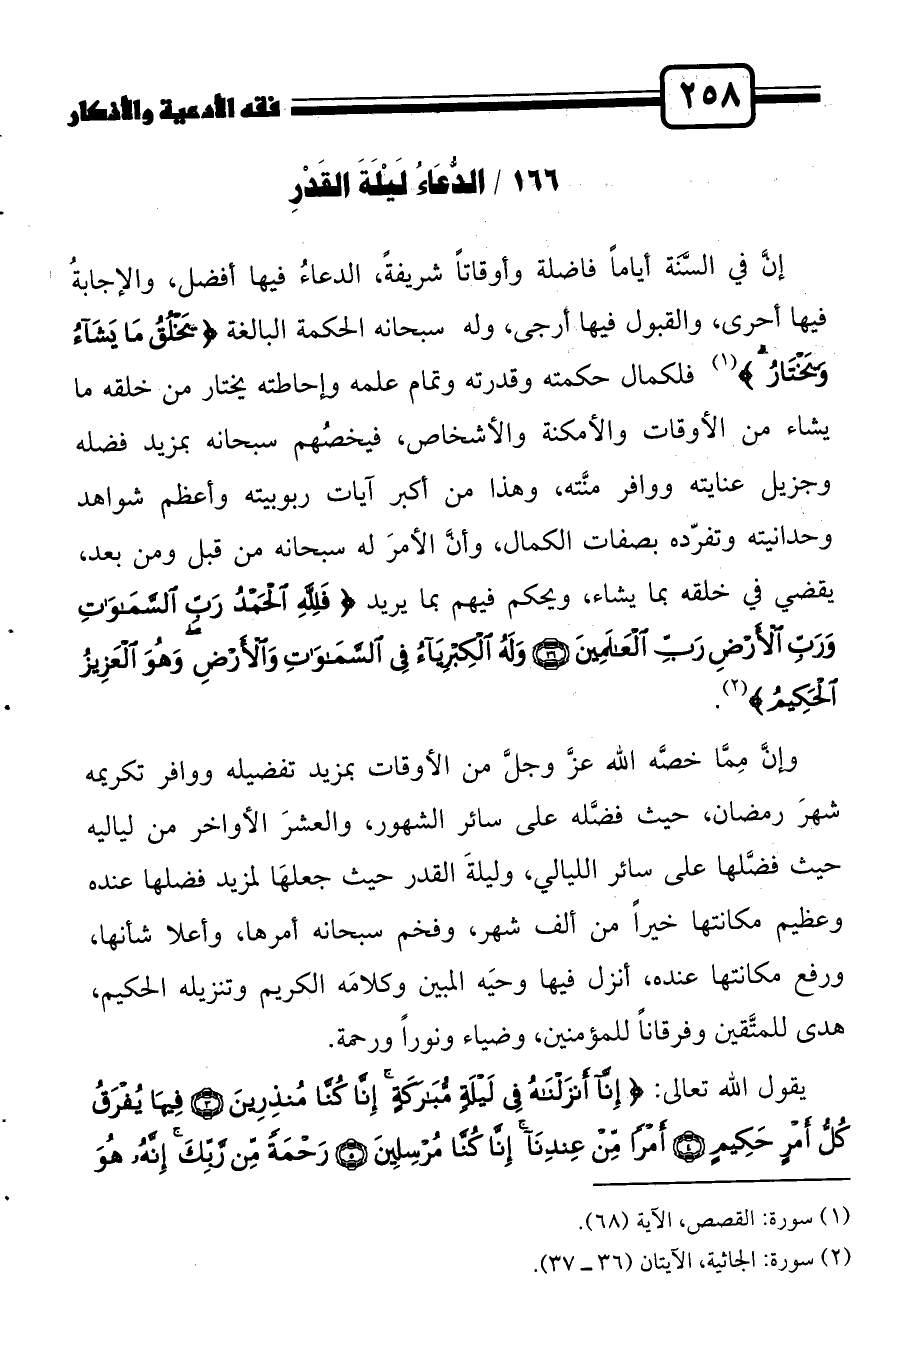 ٢٥٨
فقه الأدعية والأذكار
١٦٦ / الدُّعَاءُ لَيْلَةَ القَدْرِ
إنَّ في السَّنَة أياماً فاضلة وأوقاتاً شريفةً، الدعاءُ فيها أفضل، والإجابةُ
فيها أحرى، والقبول فيها أرجى، وله سبحانه الحكمة البالغة ﴿ يَخْلُقُ مَا يَشَآءُ
وَيَخْتَارُ ﴾(١) فلكمال حكمته وقدرته وتمام علمه وإحاطته يختار من خلقه ما
يشاء من الأوقات والأمكنة والأشخاص، فيخصُهم سبحانه بمزيد فضله
وجزيل عنايته ووافر منَّته، وهذا من أكبر آيات ربوبيته وأعظم شواهد
وحدانيته وتفرّده بصفات الكمال، وأنَّ الأمرَ له سبحانه من قبل ومن بعد،
يقضي في خلقه بما يشاء، ويحكم فيهم بما يريد ﴿ فَلِلَّهِ ٱلْحَمْدُ رَبِّ ٱلسَّمَٰوَٰتِ
وَرَبِّ ٱلْأَرْضِ رَبِّ ٱلْعَٰلَمِينَ ۝٣٦ وَلَهُ ٱلْكِبْرِيَآءُ فِى ٱلسَّمَٰوَٰتِ وَٱلْأَرْضِ ۖ وَهُوَ ٱلْعَزِيزُ
ٱلْحَكِيمُ ﴾(٢).
وإنَّ مِمَّا خصَّه الله عزَّ وجلَّ من الأوقات بمزيد تفضيله ووافر تكريمه
شهرَ رمضان، حيث فضَّله على سائر الشهور، والعشرَ الأواخر من لياليه
حيث فضَّلها على سائر الليالي، وليلةَ القدر حيث جعلهَا لمزيد فضلها عنده
وعظيم مكانتها خيراً من ألف شهر، وفخم سبحانه أمرها، وأعلا شأنها،
ورفع مكانتها عنده، أنزل فيها وحيَه المبين وكلامَه الكريم وتنزيله الحكيم،
هدى للمتَّقين وفرقاناً للمؤمنين، وضياء ونوراً ورحمة.
يقول الله تعالى: ﴿ إِنَّآ أَنزَلْنَٰهُ فِى لَيْلَةٍ مُّبَٰرَكَةٍ ۚ إِنَّا كُنَّا مُنذِرِينَ ۝٣ فِيهَا يُفْرَقُ
كُلُّ أَمْرٍ حَكِيمٍ ۝٤ أَمْرًا مِّنْ عِندِنَآ ۚ إِنَّا كُنَّا مُرْسِلِينَ ۝٥ رَحْمَةً مِّن رَّبِّكَ ۚ إِنَّهُۥ هُوَ
(١) سورة: القصص، الآية (٦٨).
(٢) سورة: الجاثية، الآيتان (٣٦ ـ ٣٧).